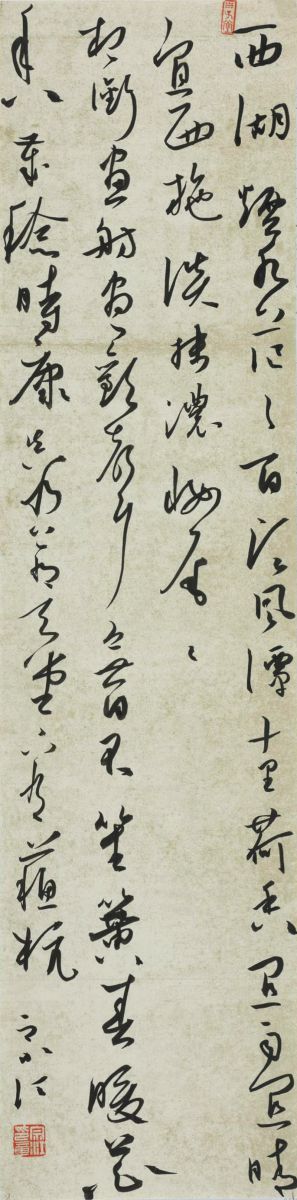 西湖煙水茫〻百頃風潭十里荷香宜雨宜晴
宜西施淡抹濃妝尾〻
相銜畫舫盡歡聲無日不笙簧春暖花
香歲稔時康真乃上有天堂下有蘇杭